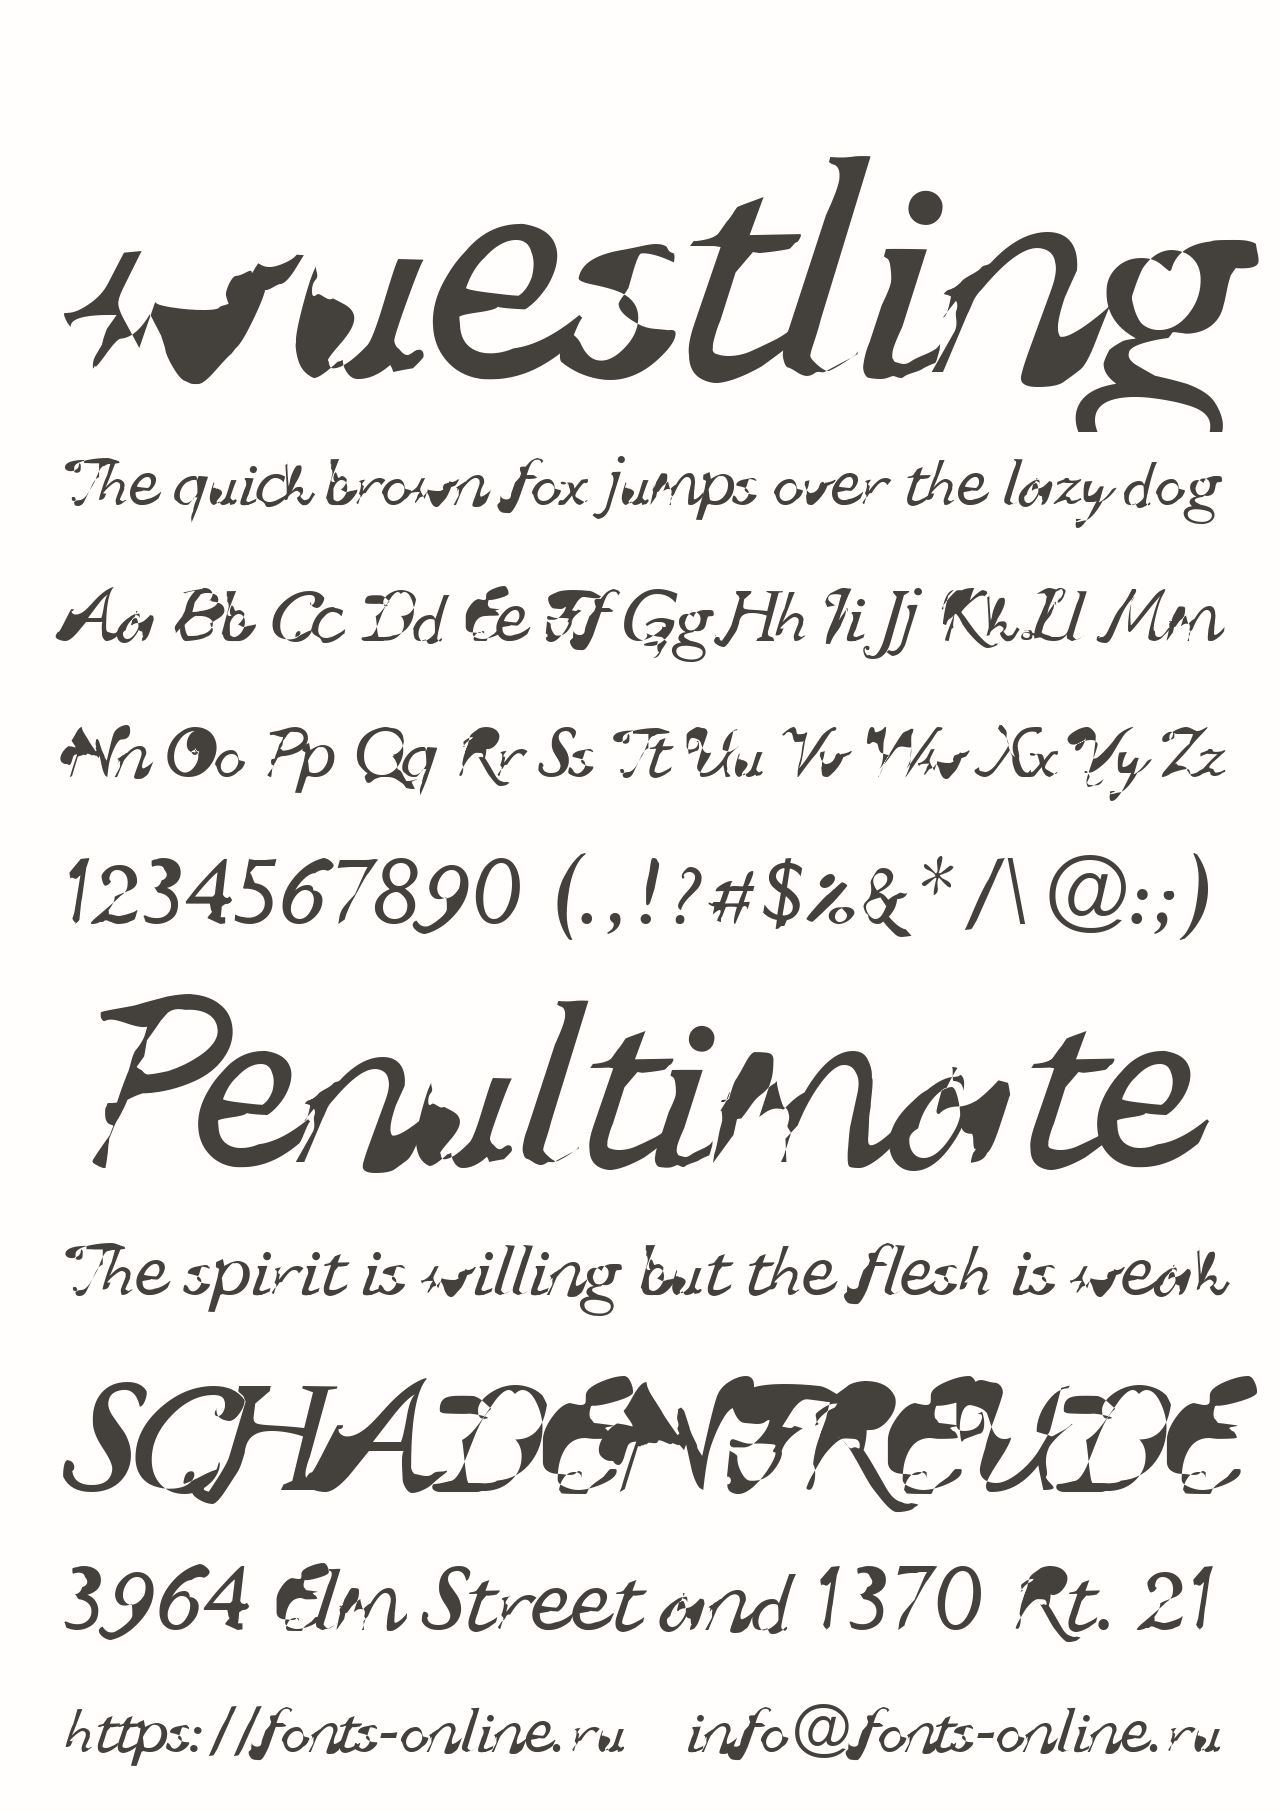 wuestling
The quick brown fox jumps over the lazy dog
Aa Bb Cc Dd Ee Ff Gg Hh Ii Jj Kk Ll Mm
Nn Oo Pp Qq Rr Ss Tt Uu Vv Ww Xx Yy Zz
1234567890 (.,!?#$%&*/\@:;)
Penultimate
The spirit is willing but the flesh is weak
SCHADENFREUDE
3964 Elm Street and 1370 Rt. 21
https://fonts-online.ru info@fonts-online.ru